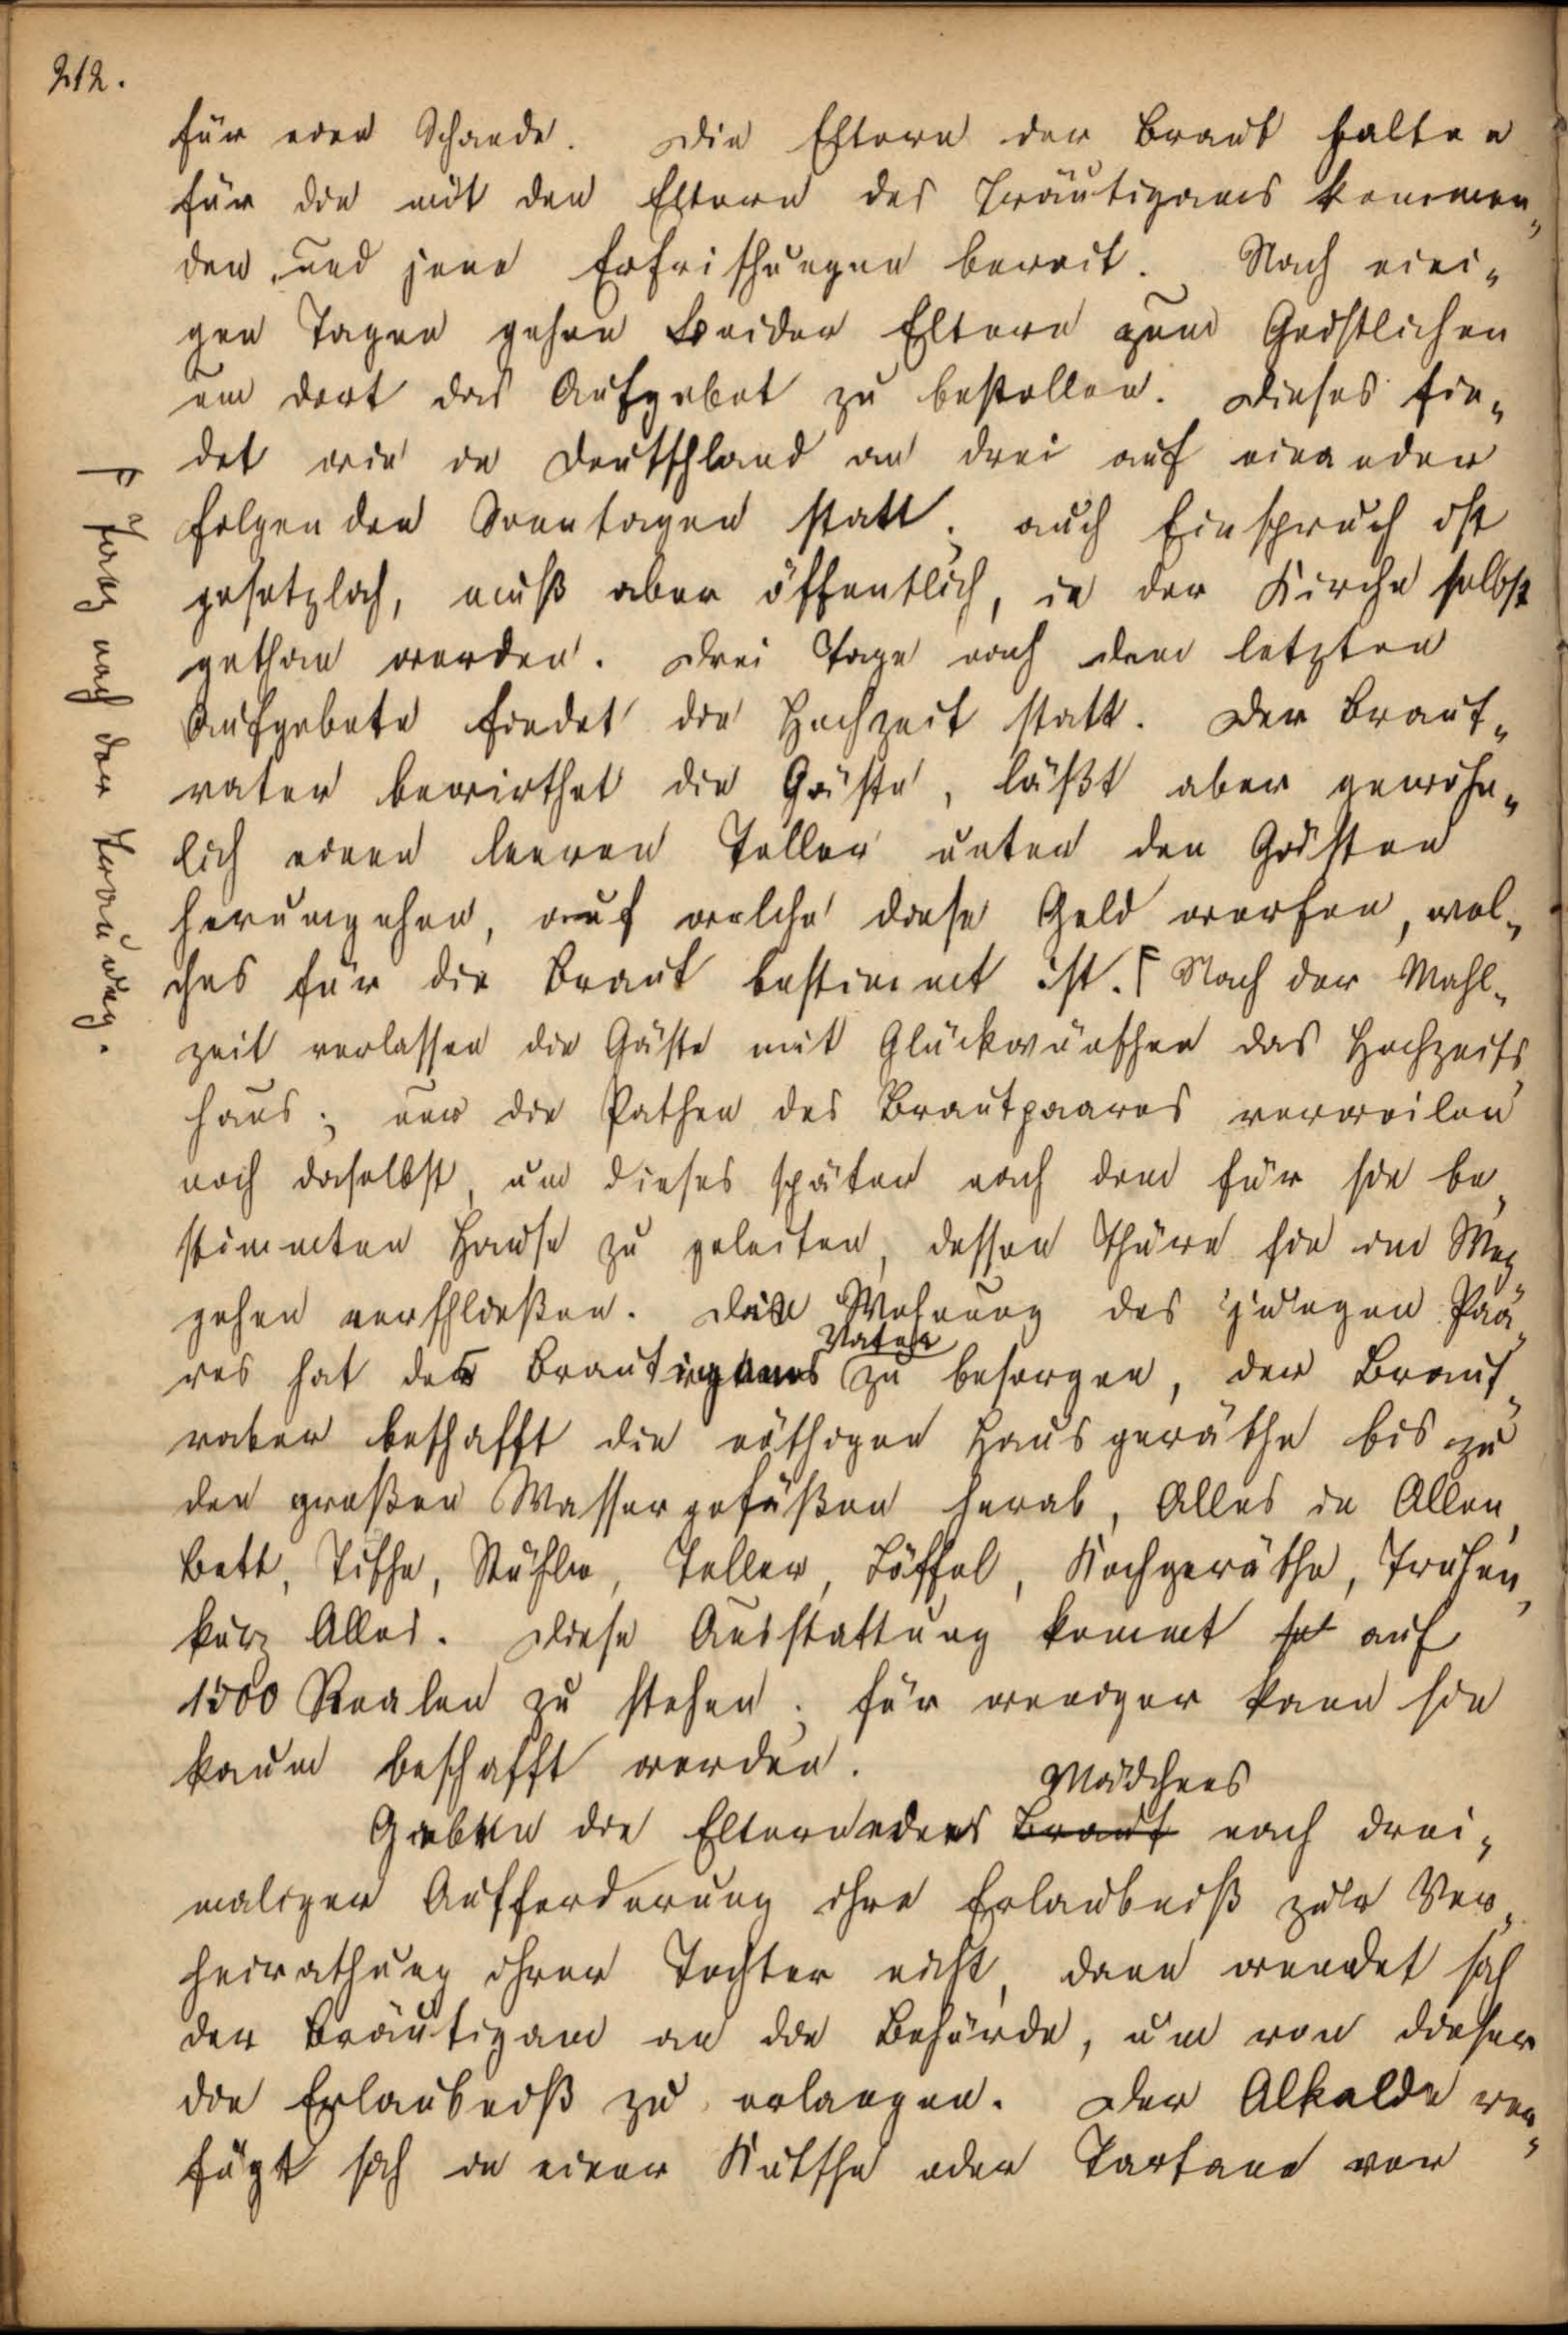 212.
für eine Schande. Die Eltern der Braut halten
für die mit den Eltern des Bräutigams kommen„
den und jene Erfrischungen bereit. Nach eini„
gen Tagen gehen beider Eltern zum Geistlichen
um dort das Aufgebot zu bestellen. Dieses fin„
det wie in Deutschland an drei auf einander
folgenden Sonntagen statt; auch Einspruch ist
gesetzlich, muß aber öffentlich, in der Kirche selbst
gethan werden. Drei Tage nach dem letzten
Aufgebote findet die Hochzeit statt. Der Braut„
vater bewirthet die Gäste, läßt aber gewöhn„
lich einen leeren Teller unter den Gästen
herumgehen, auf welche diese Geld werfen, wel„
ches für die Braut bestimmt ist. Γ Nach der Mahl„
zeit verlassen die Gäste mit Glückwünschen das Hochzeits„
haus; nur die Pathen des Brautpaares verweilen
noch daselbst, um dieses später nach dem für sie be„
stimmten Hause zu geleiten, dessen Thüre sie im Weg„
gehen verschließen. Die Wohnung des jungen Paa„
res hat des Bräutigams Vater zu besorgen, der Braut„
vater beschafft die nöthigen Hausgeräthe bis zu
den großen Wassergefäßen herab, Alles in Allen,
Bett, Tische, Stühle, Teller, Löffel, Kochgeräthe, Truhen,
kurz Alles. Diese Ausstattung kommt auf
1500 Realen zu stehen; für weniger kann sie
kaum beschafft werden.
Geben die Eltern eines Braut Mädchens nach drei„
maliger Aufforderung ihre Erlaubniß zur Ver„
heirathung ihrer Tochter nicht, dann wendet sich
der Bräutigam an die Behörde, um von dieser
die Erlaubniß zu erlangen. Der Alkalde ver„
fügt sich in einer Kutsche oder Tartane vor
Γ Tags nach der Trauung.